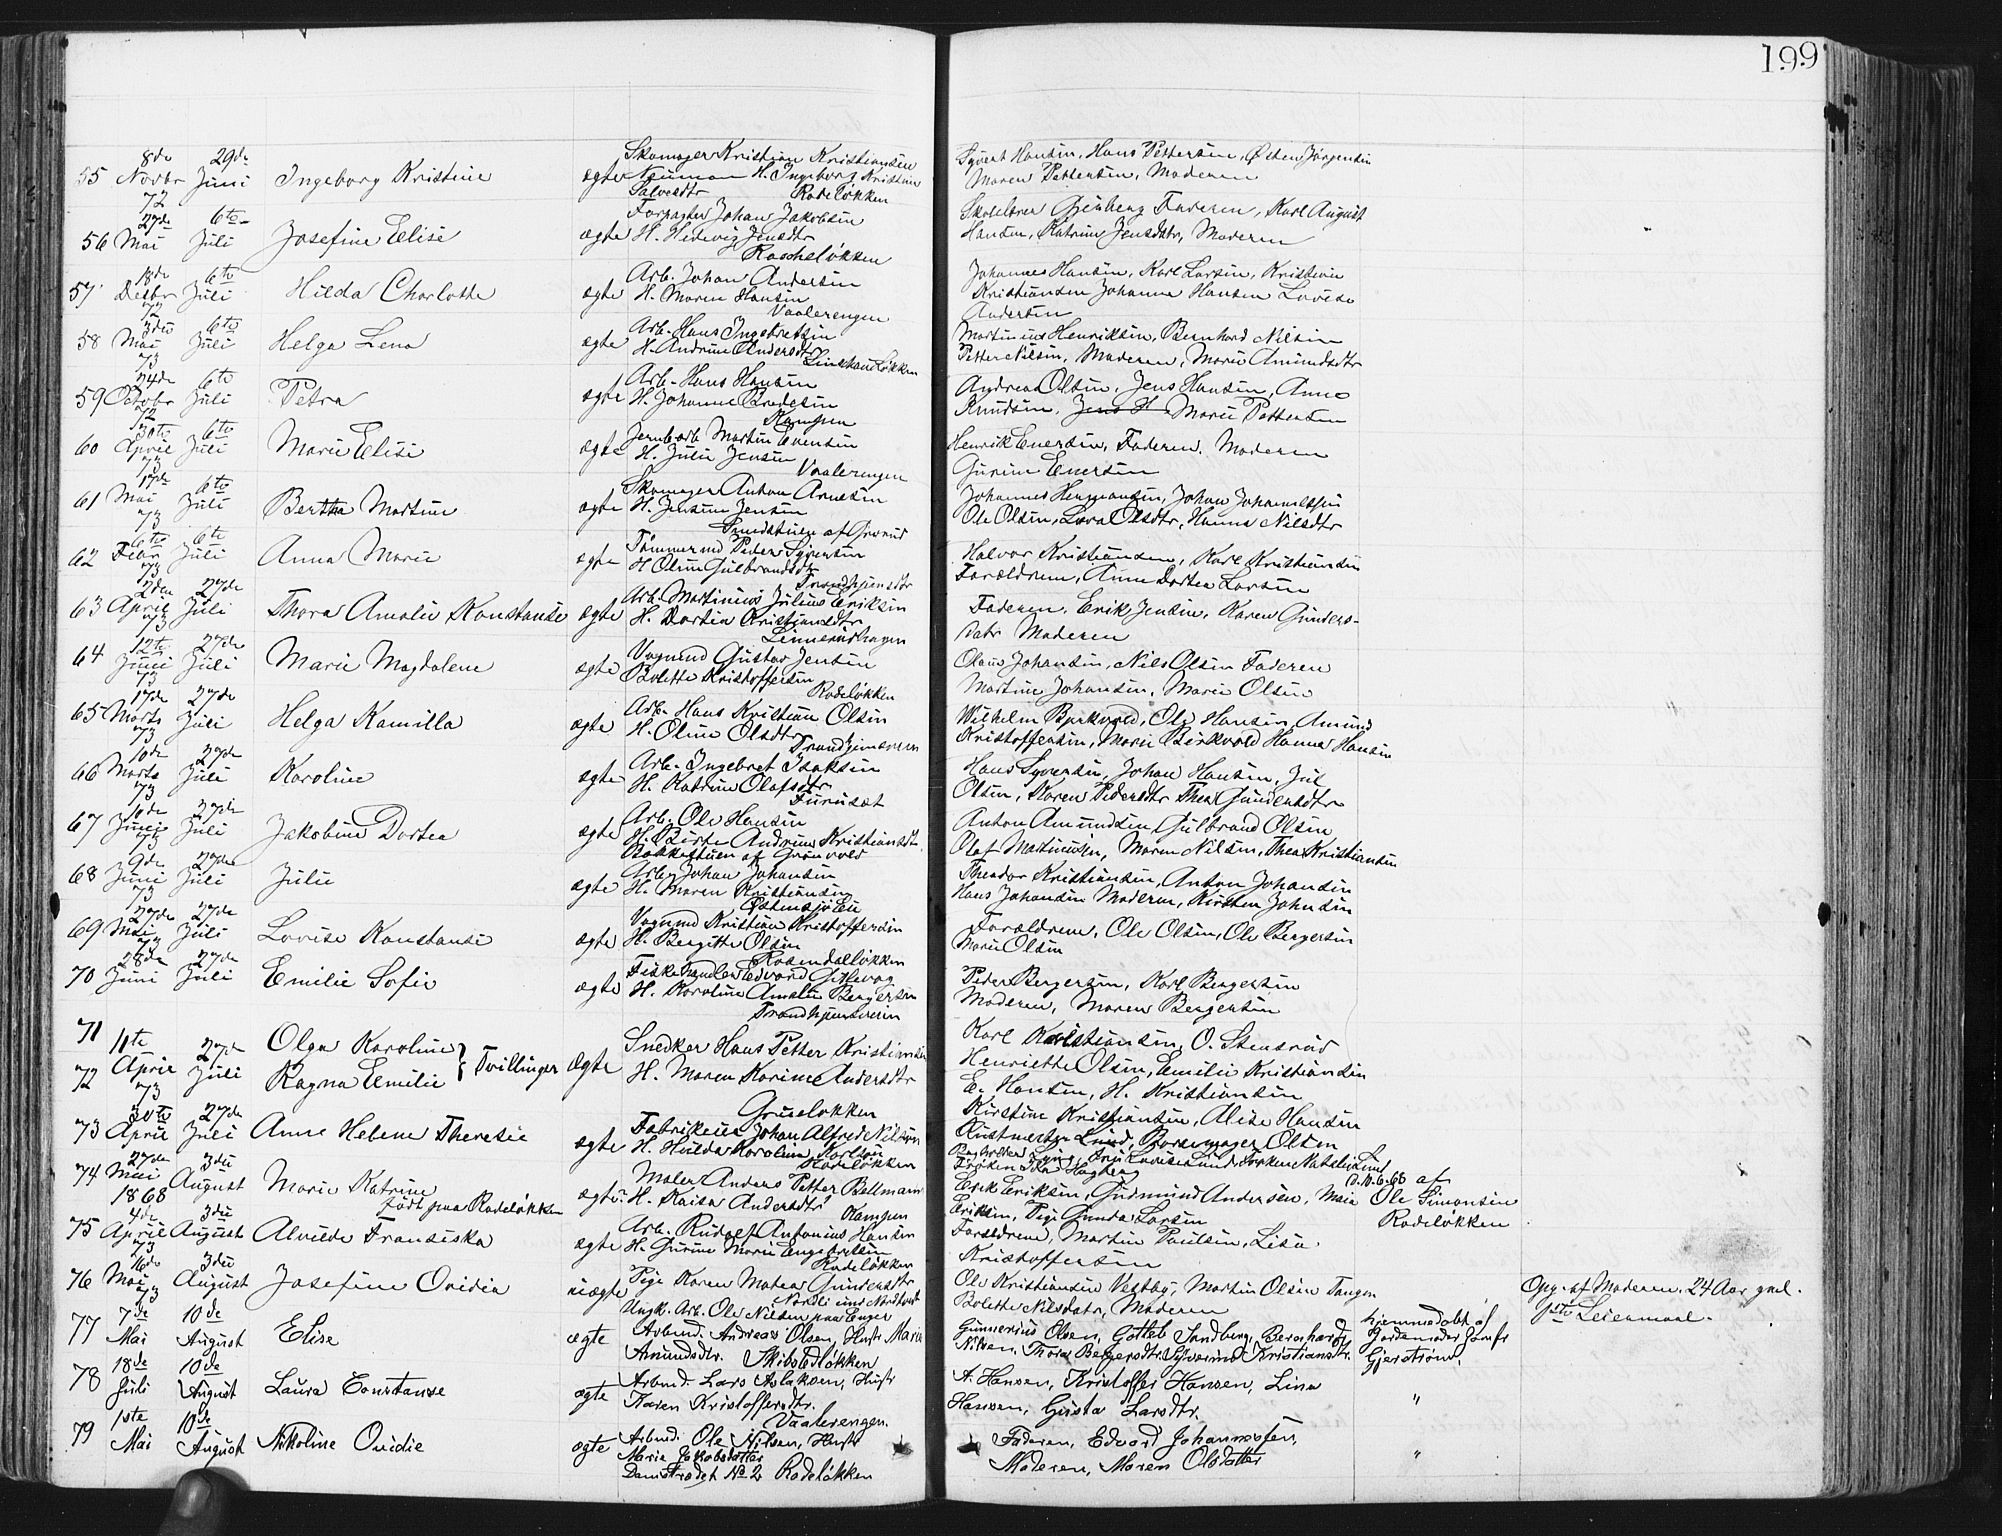 199
55 8de Novbr 72 29de Juni Ingeborg Kristine ægte Skomager Kristian Kristiansen H. Ingeborg Kristine Salvesdtr Rodeløkken
Syvert Hansen, Hans Pettersen, Østen Jørgensen
Maren Pettersen, Moderen
56 27de Mai 6te Juli Josefine Elise ægte Forpagter Johan Jakobsen H. Hedevig Jensdtr
Skolelærer Faderen, Karl August
Hansen, Katrine Jensdatr, Moderen
57 18de Desbr 72 6te Juli Hilda Charlotte ægte Arb. Johan Andersen H. Maren Hansen Vaalerengen
Johannes Hansen, Karl Larsen, Kristian
Kristiansen Johanne Hansen Lovise
Andersen
58 3die Mai 73 6te Juli Helga Lena ægte Arb. Hans Ingebretsen H. Andrine Andersdtr
Martinius Henriksen, Bernhard Nilsen
Petter Nilsen, Moderen, Marie Amundsdtr
59 24de Octobr 72 6te Juli Petra ægte Arb. Hans Hansen H. Johanne Bredesen Kampen
Andreas Olsen, Jens Hansen, Anne
Knudsen, Jens H Marie Pettersen
60 30te April 73 6te Juli Marie Elise ægte Jernbarb Martin Evensen H. Julie Jensen Vaalerengen
Henrik Enersen, Faderen, Moderen
Gurine Enersen
61 17de Mai 73 6te Juli Bertha Martine ægte Skomager Anton Arnesen H. Jensine Jensen
Johannes Hermansen, Johan Johannessen
Ole Olsen, Lova Olsdtr, Hanna Nilsdtr
62 6te Febr 73 6te Juli Anna Marie ægte Tømmermd Peder Syversen H Oline Gulbrandsdtr
Halvor Kristiansen, Karl Kristiansen
Forældrene, Anne Dortea Larsen
63 2den April 73 27de Juli Thora Amalie Konstanse ægte Arb. Martinius Julius Eriksen H. Dortea Kristiansdtr
Faderen, Erik Jensen, Karen Gunders-
datr Moderen
64 12te Juni 73 27de Juli Marie Magdalene ægte Vognmd Gustav Jensen Bolette Kristoffersen Rodeløkken
Olaus Johansen, Nils Olsen Faderen
Martine Johansen, Marie Olsen
65 17de Marts 73 27de Juli Helga Kamilla ægte Arb. Hans Kristian Olsen H. Oline Olsdtr
Wilhelm Bjrkvold, Ole Hansen, Amund
Kristoffersen, Marie Birkvold Hanna Hansen
66 10de Marts 73 27de Juli Karoline ægte Arb. Ingebret Isaksen H. Katrine Olafsdtr Furuset
Hans Syversen, Johan Hansen, Jul
Olsen, Karen Pedersdtr Thea Gundersdtr
67 Juni 73 27de Juli Jakobine Dortea ægte Arb. Ole Hansen H. Birte Andrine Kristiansdtr. Bakkestuen af Grønvold
Anton Amundsen, Gulbrand Olsen
Olaf Martinusen, Maren Nilsen, Thea Kristiansen
68 9de Juni 73 27de Juli Julie ægte Arb. Johan Johansen H. Maren Kristiansen
Theodor Kristiansen, Anton Johansen
Hans Johansen Moderen, Kirsten Johnsen
69 27de Mai 73 27de Juli Lovise Konstanse ægte Vognmd Kristian Kristoffersen H. Bergitte Olsen Rosendalløkken
Forældrene, Ole Olsen, Ole Bergersen
Marie Olsen
70 28de Juni 27de Juli Emilie Sofie ægte Fiskehandler Edvard H. Karoline Amalie Bergersen
Peder Bergersen, Karl Bergersen
Moderen, Maren Bergersen
71 11te April 73 27de Juli Olga Karoline
72 Ragna Emilie } Tvillinger Ægte Snedker Hans Petter Kristiansen H. Maren Karine Andersdtr
Karl Kristiansen, O. Stensrud
Henriette Olsen, Emilie Kristiansen
E. Hansen, H. Kristiansen
73 30te April 27de Juli Anne Helene Theresie ægte Fabrikeier Johan Alfred Nilsen H. Hulda Karoline Karlsen Rodeløkken
Kirstine Kristiansen, Alise Hansen
Lund, Olsen
74 27de Mai 1868 3die August Marie Katrine født paa Rodeløkken ægte Maler Anders Petter Bellmann H. Kaisa Andersdtr Kampen
Erik Eriksen, Gudmund Andersen, Maia
Eriksen, Pige Gunda Larsen
af Ole Simonsen Rodeløkken
75 4de April 73 3die August Alvilde Fransiska ægte Arb. Rudolf Antonius Hansen H. Gurine Marie Engebretsen Rodeløkken
Forældrene, Martin Paulsen, Lisa
Kristoffersen
76 16de Mai 73 3die August Josefine Ovidia uægte Pige Karen Matea Gundersdtr Ungk. Arb. Ole Nielsen paa Enger
Ole Kristiansen Vestby, Martin Olsen Tangen
Bolette Nilsdatr, Moderen
Opg. af Moderen. 24 Aar gml.
1ste Leiermaal.
77 7de Mai 10de August Elise ægte Arbmd. Andreas Olsen, Hustr Marie Amundsdtr. Skibstedløkken
Gunnerius Olsen, Gotleb Sandberg, Bernhard
Nilsen, Thora Bergersdtr. Kristiansdtr.
hjemmedøbt af Jordemoder Jomfr Gjerstrøm.
78 18de Juli 10de August Laura Constanse ægte Arbmd. Lars Aslaksen, Hustr Karen Kristoffersdtr. Vaalerengen.
A. Hansen, Kristoffer Hansen, Lina
Hansen, Gusta Larsdtr.
"
79 1ste Mai 10de August Nikoline Ovidie ægte Arbmd. Ole Nilsen, Hustr Marie Jakobsdatter Damstrædet No 2 Rodeløkken
Faderen, Edvard Johannesen,
Moderen, Maren Olsdatter
"